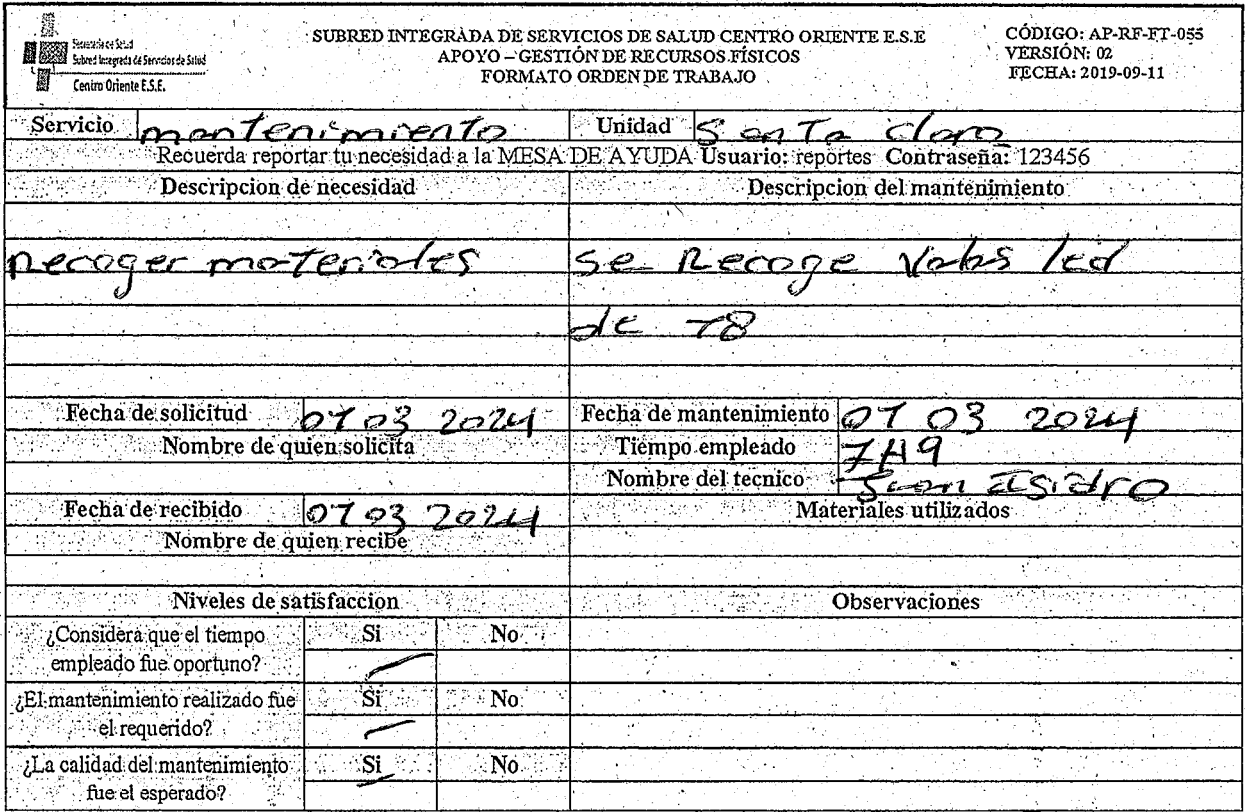 Secretaría de Salud
Subred Integrada de Servicios de Salud
Centro Oriente E.S.E.
SUBRED INTEGRADA DE SERVICIOS DE SALUD CENTRO ORIENTE E.S.E
APOYO – GESTIÓN DE RECURSOS FÍSICOS
FORMATO ORDEN DE TRABAJO
CÓDIGO: AP-RF-FT-055
VERSIÓN: 02
FECHA: 2019-09-11
Servicio mantenimiento Unidad Santa Clara
Recuerda reportar tu necesidad a la MESA DE AYUDA Usuario: reportes Contraseña: 123456
Descripcion de necesidad Descripcion del mantenimiento
Recoger materiales se Recoge led
de T8
Fecha de solicitud 07 03 2024 Fecha de mantenimiento 07 03 2024
Nombre de quien solicita Tiempo empleado
Nombre del tecnico Juan Isidro
Fecha de recibido 07 03 2024 Materiales utilizados
Nombre de quien recibe
Niveles de satisfaccion Observaciones
¿Considera que el tiempo Si No
empleado fue oportuno?
¿El mantenimiento realizado fue Si No
el requerido?
¿La calidad del mantenimiento Si No
fue el esperado?